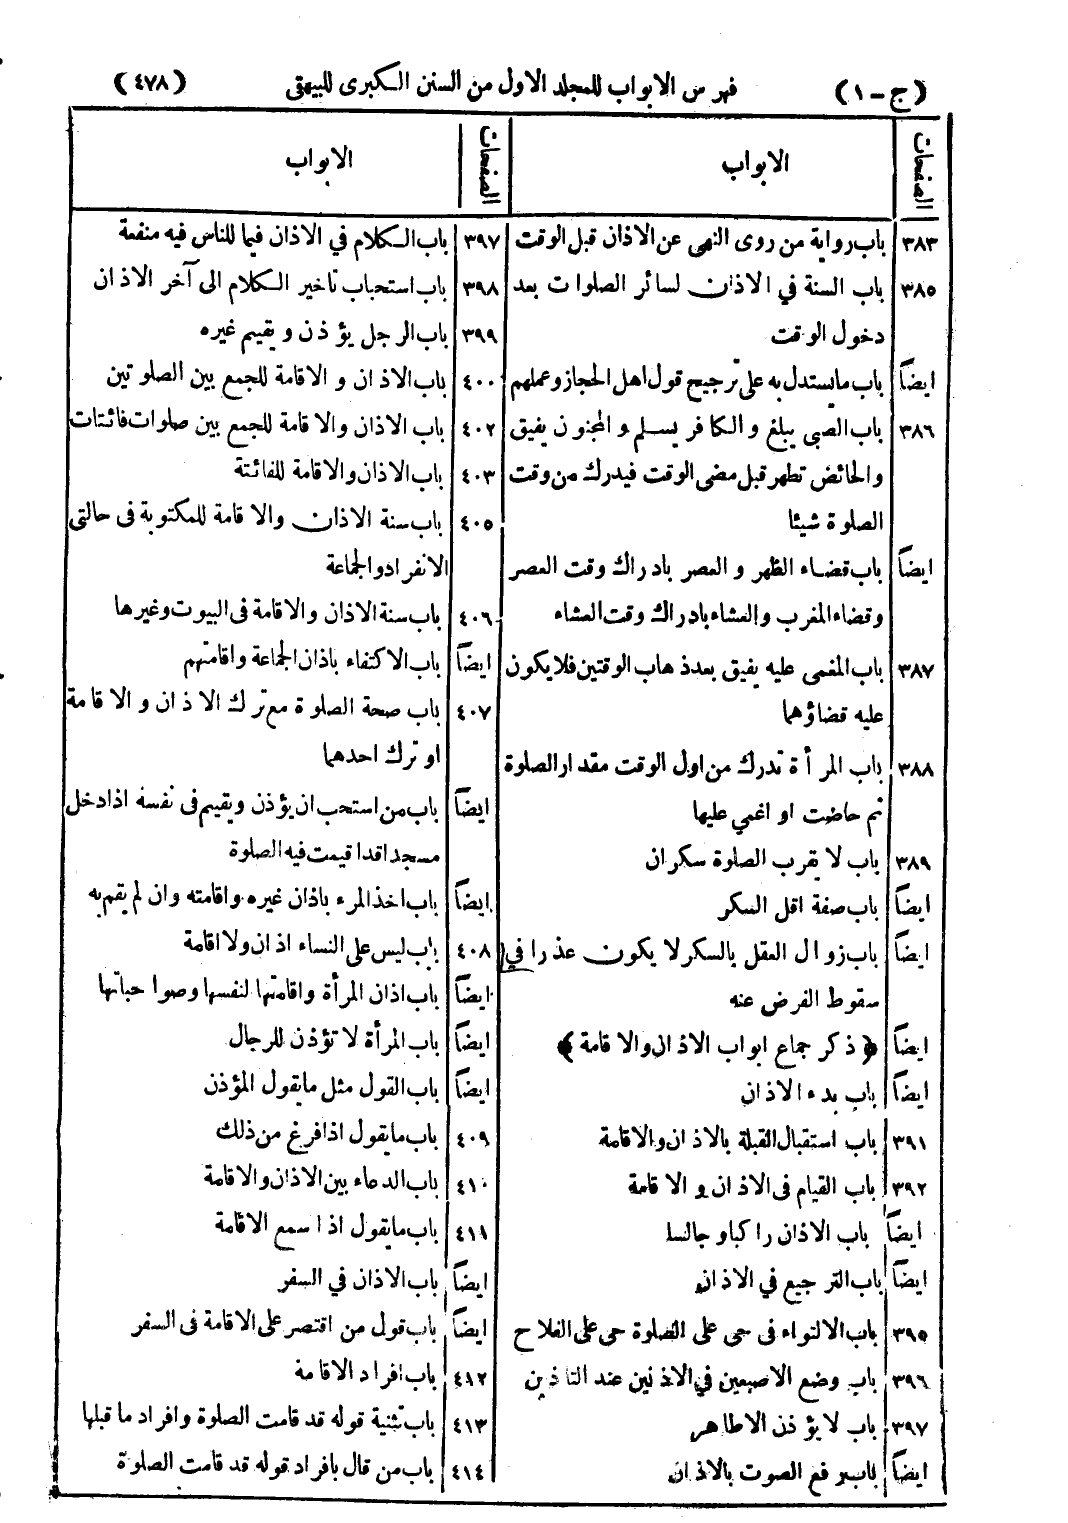 (ج - ١) فهرس الابواب للمجلد الاول من السنن الكبرى للبيهقى (٤٧٨)
الصفحات الابواب
٣٨٣ باب رواية من روى النهى عن الاذان قبل الوقت
٣٨٥ باب السنة في الاذان لسائر الصلوات بعد
دخول الوقت
ايضاً باب مايستدل به على ترجيح قول اهل الحجاز وعملهم
٣٨٦ باب الصبى يبلغ والكافر يسلم والمجنون يفيق
والحائض تطهر قبل مضى الوقت فيدرك من وقت
الصلوة شيئا
ايضاً باب قضاء الظهر و العصر بادراك وقت العصر
وقضاء المغرب والعشاء بادراك وقت العشاء
٣٨٧ باب المغمى عليه يفيق بعد ذهاب الوقتين فلا يكون
عليه قضاؤهما
٣٨٨ باب المرأة تدرك من اول الوقت مقدار الصلوة
ثم حاضت او اغمي عليها
٣٨٩ باب لا يقرب الصلوة سكران
ايضاً باب صفة اقل السكر
ايضاً باب زوال العقل بالسكر لا يكون عذرا في
سقوط الفرض عنه
ايضاً ﴿ ذكر جماع ابواب الاذان والاقامة ﴾
ايضاً باب بدء الاذان
٣٩١ باب استقبال القبلة بالاذان والاقامة
٣٩٢ باب القيام فى الاذان و الاقامة
ايضاً باب الاذان راكبا و جالسا
ايضاً باب الترجيع في الاذان
٣٩٥ باب الالتواء فى حى على الصلوة حى على الفلاح
٣٩٦ باب وضع الاصبعين في الاذنين عند التاذين
٣٩٧ باب لا يؤذن الا طاهر
ايضاً باب رفع الصوت بالاذان
الصفحات الابواب
٣٩٧ باب الكلام في الاذان فيما للناس فيه منفعة
٣٩٨ باب استحباب تاخير الكلام الى آخر الاذان
٣٩٩ باب الرجل يؤذن و يقيم غيره
٤٠٠ باب الاذان و الاقامة للجمع بين الصلوتين
٤٠٢ باب الاذان والاقامة للجمع بين صلوات فائتات
٤٠٣ باب الاذان والاقامة للفائتة
٤٠٥ باب سنة الاذان والاقامة للمكتوبة فى حالتى
الانفراد والجماعة
٤٠٦ باب سنة الاذان والاقامة فى البيوت وغيرها
ايضاً باب الاكتفاء باذان الجماعة واقامتهم
٤٠٧ باب صحة الصلوة مع ترك الاذان و الاقامة
او ترك احدهما
ايضاً باب من استحب ان يؤذن ويقيم فى نفسه اذا دخل
مسجدا قد اقيمت فيه الصلوة
ايضاً باب اخذ المرء باذان غيره واقامته وان لم يقم به
٤٠٨ باب ليس على النساء اذان ولا اقامة
ايضاً باب اذان المرأة واقامتها لنفسها وصواحباتها
ايضاً باب المرأة لا تؤذن للرجال
ايضاً باب القول مثل مايقول المؤذن
٤٠٩ باب مايقول اذا فرغ من ذلك
٤١٠ باب الدعاء بين الاذان والاقامة
٤١١ باب مايقول اذا سمع الاقامة
ايضاً باب الاذان في السفر
ايضاً باب قول من اقتصر على الاقامة فى السفر
٤١٢ باب افراد الاقامة
٤١٣ باب تثنية قوله قد قامت الصلوة وافراد ما قبلها
٤١٤ باب من قال بافراد قوله قد قامت الصلوة